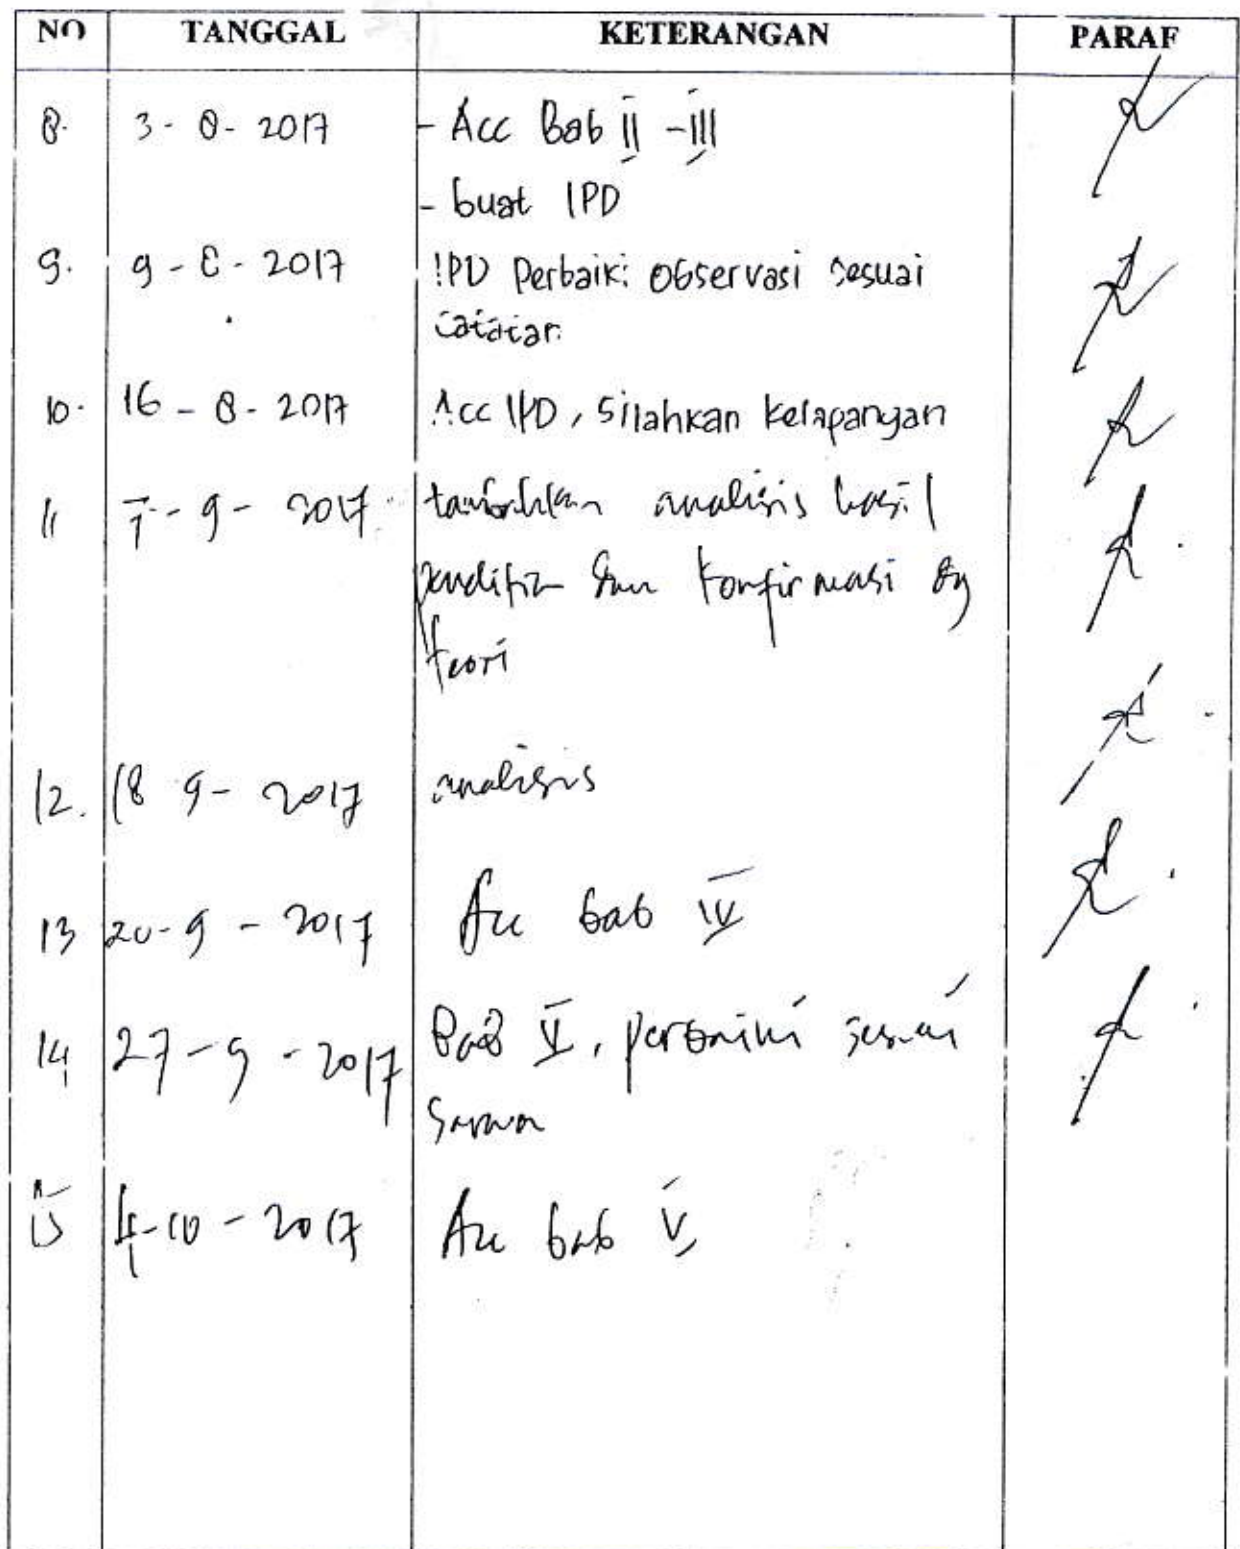 NO TANGGAL KETERANGAN PARAF
8. 3 - 8 - 2017 - Acc Bab II - III
- buat IPD
9. 9 - 8 - 2017 IPD Perbaiki observasi sesuai
catatan
10. 16 - 8 - 2017 Acc IPD, silahkan kelapangan
11 7 - 9 - 2017 tambahkan analisis hasil
penelitian dan konfirmasi dg
teori
12. 18 9 - 2017 analisis
13 20 - 9 - 2017 Acc bab IV
14 27 - 9 - 2017 Bab V, perbaiki sesuai
saran
15 4 - 10 - 2017 Acc bab V